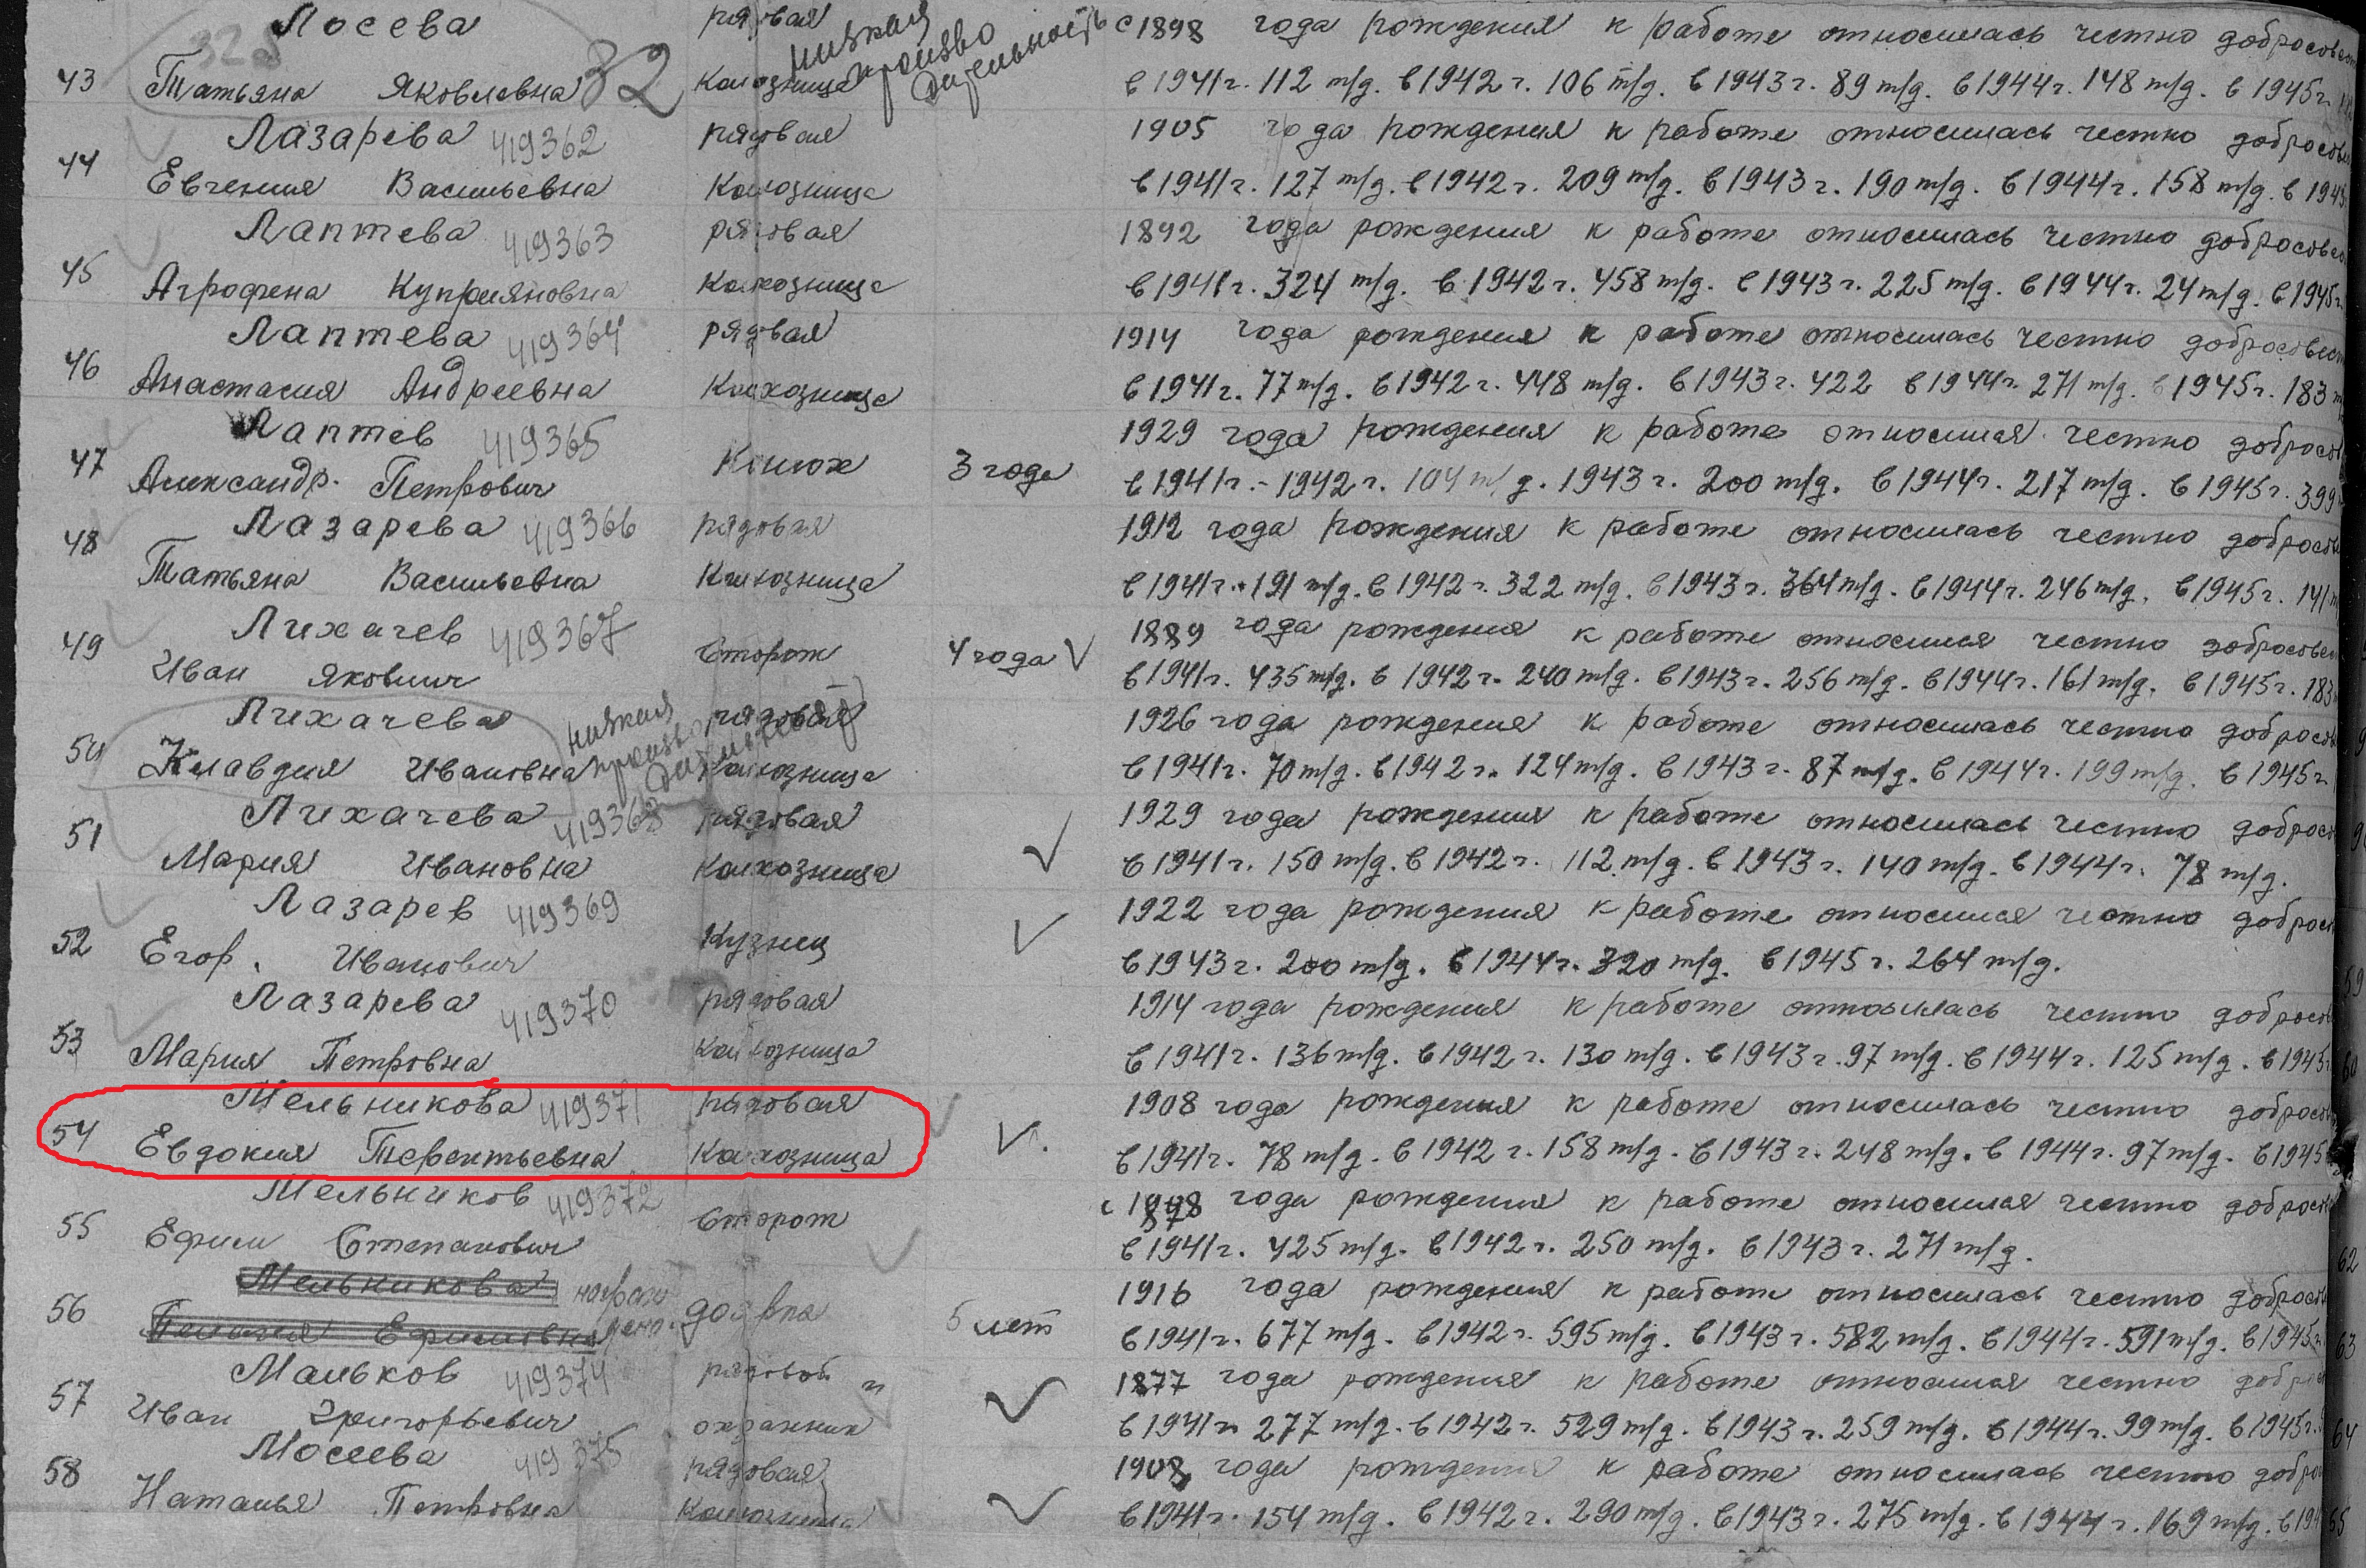 Лосева рядовая низкая с 1898 года рождения к работе относилась честно добросовест
43 Татьяна Яковлевна 32 Колхозница произво дительность в 1941г. 112 т/д. в 1942 г. 106 т/д. в 1943 г. 89 т/д. в 1944 г. 148 т/д. в 1945 г.
Лазарева 419362 рядовая 1905 года рождения к работе относилась честно добросове
44 Евгения Васильевна Колхозница в 1941 г. 127 т/д. в 1942 г. 209 т/д. в 1943 г. 190 т/д. в 1944 г. 158 т/д. в 1945
Лаптева 419363 рядовая 1892 года рождения к работе относилась честно добросовес
45 Агрофена Куприяновна Колхозница в 1941 г. 324 т/д. в 1942 г. 458 т/д. в 1943 г. 225 т/д. в 1944 г. 24 т/д. в 1945 г.
Лаптева 419364 рядовая 1914 года рождения к работе относилась честно добросовест
46 Анастасия Андреевна Колхозница в 1941 г. 77 т/д. в 1942 г. 448 т/д. в 1943 г. 422 в 1944 г. 271 т/д. в 1945 г. 183
Лаптев 419365 1929 года рождения к работе относился честно добросов
47 Александр. Петрович Конюх 3 года в 1941 г. - 1942 г. 104 т/д. 1943 г. 200 т/д. в 1944 г. 217 т/д. в 1945 г. 399
Лазарева 419366 рядовая 1912 года рождения к работе относилась честно добросов
48 Татьяна Васильевна Колхозница в 1941 г. 191 т/д. в 1942 г. 322 т/д. в 1943 г. 364 т/д. в 1944 г. 246 т/д. в 1945 г. 141
Лихачев 419367 1889 года рождения к работе относился честно добросовес
49 Иван Яковлич Сторож 4 года V в 1941 г. 435 т/д. в 1942 г. 240 т/д. в 1943 г. 256 т/д. в 1944 г. 161 т/д. в 1945 г. 183
Лихачева низкая рядовая 1926 года рождения к работе относилась честно добросов
50 Клавдия Ивановна производительность Колхозница в 1941 г. 70 т/д. в 1942 г. 124 т/д. в 1943 г. 87 т/д. в 1944 г. 199 т/д. в 1945 г
Лихачева 419368 рядовая 1929 года рождения к работе относилась честно добросо
51 Мария Ивановна Колхозница V в 1941 г. 150 т/д. в 1942 г. 112 т/д. в 1943 г. 140 т/д. в 1944 г. 78 т/д.
Лазарев 419369 1922 года рождения к работе относился честно доброс
52 Егор. Иванович Кузнец V в 1943 г. 200 т/д. в 1944 г. 320 т/д. в 1945 г. 264 т/д.
Лазарева 419370 рядовая 1914 года рождения к работе относилась честно добросов
53 Мария Петровна Колхозница в 1941 г. 136 т/д. в 1942 г. 130 т/д. в 1943 г. 97 т/д. в 1944 г. 125 т/д. в 1945 г
Мельникова 419371 рядовая 1908 года рождения к работе относилась честно добросов
54 Евдокия Терентьевна Колхозница V. в 1941 г. 78 т/д. в 1942 г. 158 т/д. в 1943 г. 248 т/д. в 1944 г. 97 т/д. в 1945
Мельников 419372 с 1878 года рождения к работе относился честно добросов
55 Ефим Степанович Сторож в 1941 г. 425 т/д. в 1942 г. 250 т/д. в 1943 г. 271 т/д.
Мельникова 1916 года рождения к работе относилась честно добросов
56 Пелагея Ефимовна доярка 5 лет в 1941 г. 677 т/д. в 1942 г. 595 т/д. в 1943 г. 582 т/д. в 1944 г. 591 т/д. в 1945 г.
Мальков 419374 рядовой и 1877 года рождения к работе относился честно добр
57 Иван Григорьевич охранник V в 1941 г. 277 т/д. в 1942 г. 529 т/д. в 1943 г. 259 т/д. в 1944 г. 99 т/д. в 1945 г.
Мосеева 419375 рядовая 1908 года рождения к работе относилась честно добро
58 Наталья Петровна Колхозница V в 1941 г. 154 т/д. в 1942 г. 290 т/д. в 1943 г. 275 т/д. в 1944 г. 169 т/д. в 194